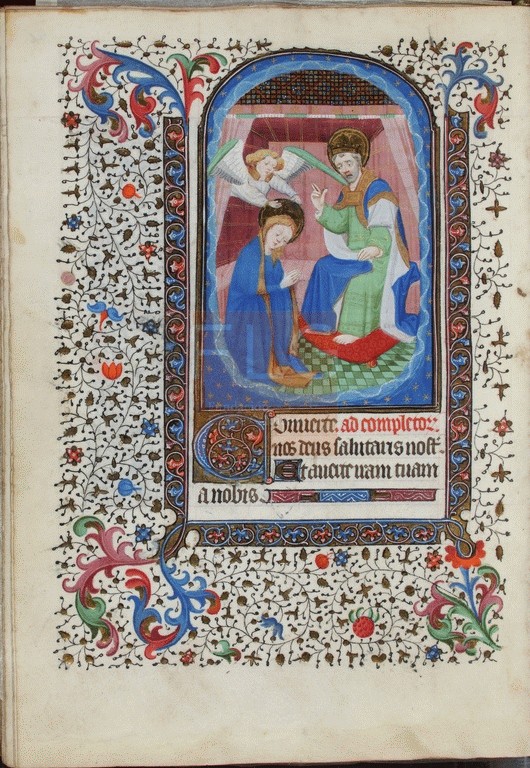 Conuerte. ad completor.
nos deus salutaris nost.
Et auerte iram tuam
a nobis.